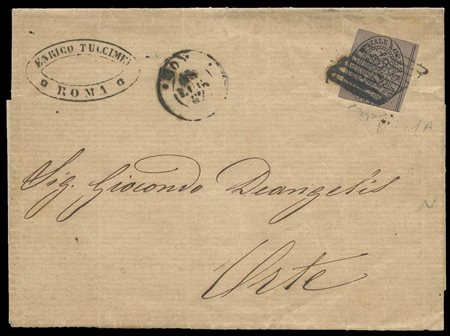 ENRICO TUCCIMEI
ROMA
Sig. Giocondo Deangelis
Orte
1A